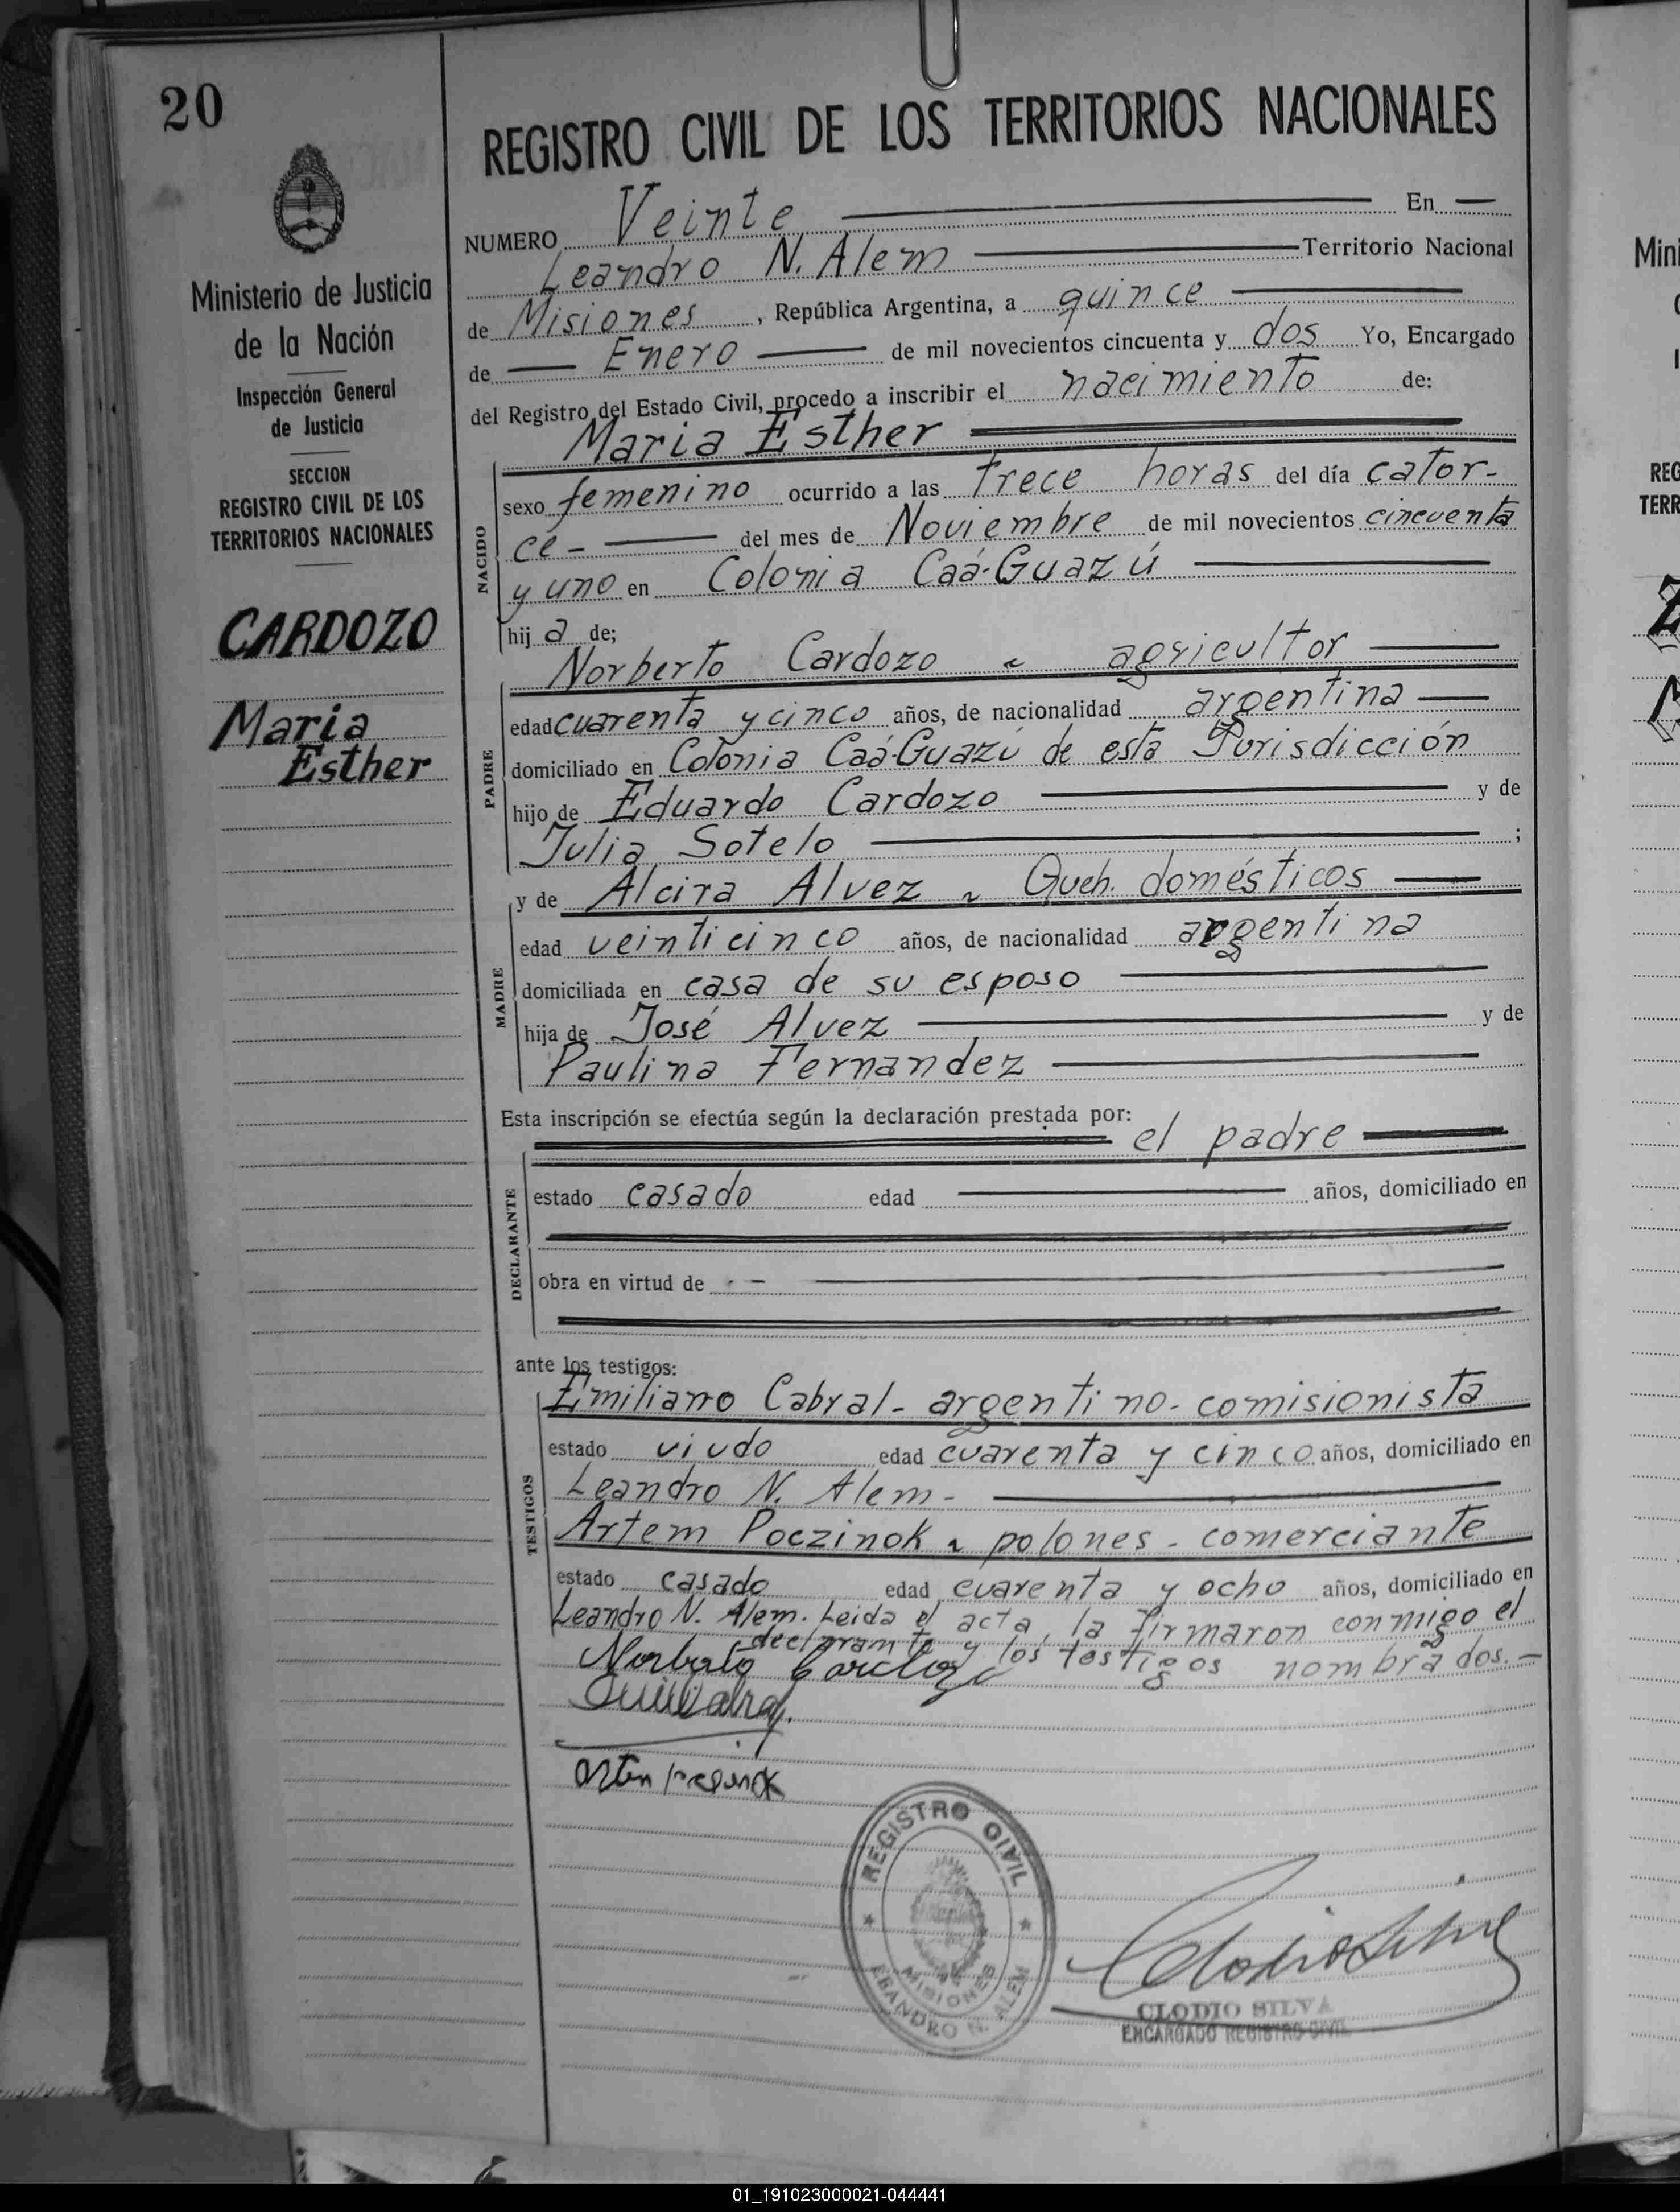 20
Ministerio de Justicia
de la Nación
Inspección General
de Justicia
SECCION
REGISTRO CIVIL DE LOS
TERRITORIOS NACIONALES
CARDOZO
Maria
Esther
REGISTRO CIVIL DE LOS TERRITORIOS NACIONALES
NUMERO Veinte En
Leandro N. Alem Territorio Nacional
de Misiones , República Argentina, a quince
de Enero de mil novecientos cincuenta y dos Yo, Encargado
del Registro del Estado Civil, procedo a inscribir el nacimiento de:
Maria Esther
NACIDO
sexo femenino ocurrido a las trece horas del día cator-
ce - del mes de Noviembre de mil novecientos cincuenta
y uno en Colonia Caá-Guazú
hij a de;
Norberto Cardozo - agricultor
PADRE
edad cuarenta y cinco años, de nacionalidad argentina
domiciliado en Colonia Caá-Guazú de esta Jurisdicción
hijo de Eduardo Cardozo y de
Julia Sotelo ;
y de Alcira Alvez - Queh. domésticos
MADRE
edad veinticinco años, de nacionalidad argentina
domiciliada en casa de su esposo
hija de José Alvez y de
Paulina Fernandez
Esta inscripción se efectúa según la declaración prestada por:
el padre
DECLARANTE
estado casado edad años, domiciliado en
obra en virtud de
ante los testigos:
TESTIGOS
Emiliano Cabral - argentino - comisionista
estado viudo edad cuarenta y cinco años, domiciliado en
Leandro N. Alem -
Artem Poczinok - polones - comerciante
estado casado edad cuarenta y ocho años, domiciliado en
Leandro N. Alem. Leida el acta, la firmaron conmigo el
declarante y los testigos nombrados. -
Norberto Cardozo
REGISTRO CIVIL
MISIONES
LEANDRO N. ALEM
Clodio Silva
CLODIO SILVA
ENCARGADO REGISTRO CIVIL
Mini
REG
TERR
01_191023000021-044441